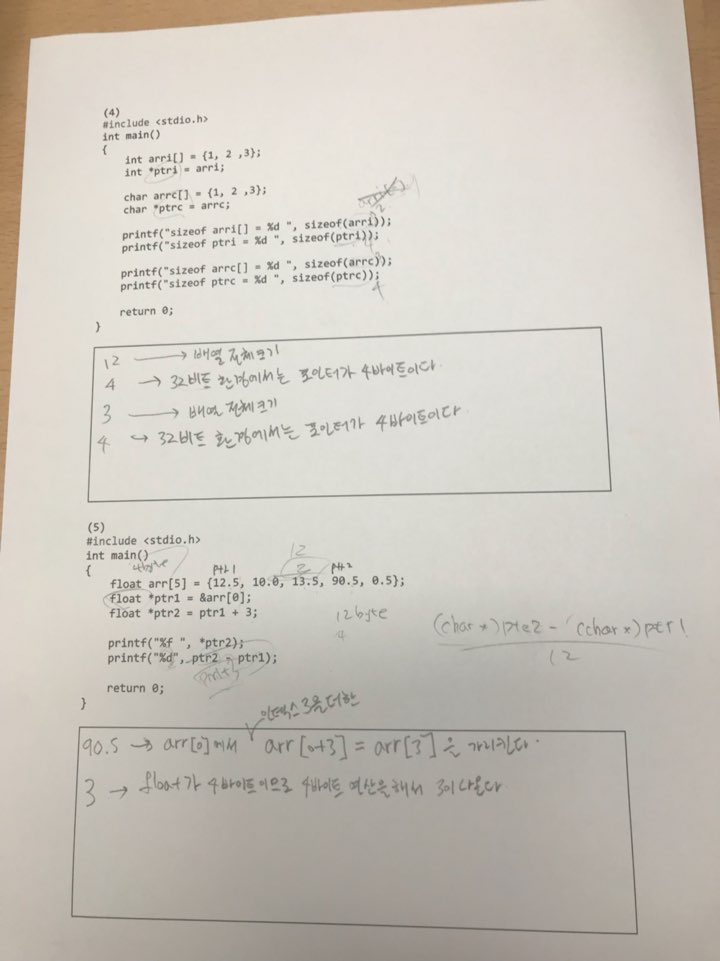 (4)
#include <stdio.h>
int main()
{
int arri[] = {1, 2 ,3};
int *ptri = arri;
char arrc[] = {1, 2 ,3};
char *ptrc = arrc;
12
printf("sizeof arri[] = %d ", sizeof(arri));
printf("sizeof ptri = %d ", sizeof(ptri));
4
printf("sizeof arrc[] = %d ", sizeof(arrc));
printf("sizeof ptrc = %d ", sizeof(ptrc));
4
return 0;
}
12 → 배열 전체크기
4 → 32비트 환경에서는 포인터가 4바이트이다.
3 → 배열 전체크기
4 → 32비트 환경에서는 포인터가 4바이트이다.
(5)
#include <stdio.h>
int main()
12
4byte ptr1 2 ptr2
{
float arr[5] = {12.5, 10.0, 13.5, 90.5, 0.5};
float *ptr1 = &arr[0];
float *ptr2 = ptr1 + 3;
12byte
4
(char *)ptr2 - (char *)ptr1
12
printf("%f ", *ptr2);
printf("%d", ptr2 - ptr1);
ptr1+3
return 0;
}
인덱스 3을 더한
90.5 → arr[0]에서 arr[0+3] = arr[3]을 가리킨다.
3 → float가 4바이트이므로 4바이트 연산을 해서 3이 나온다.